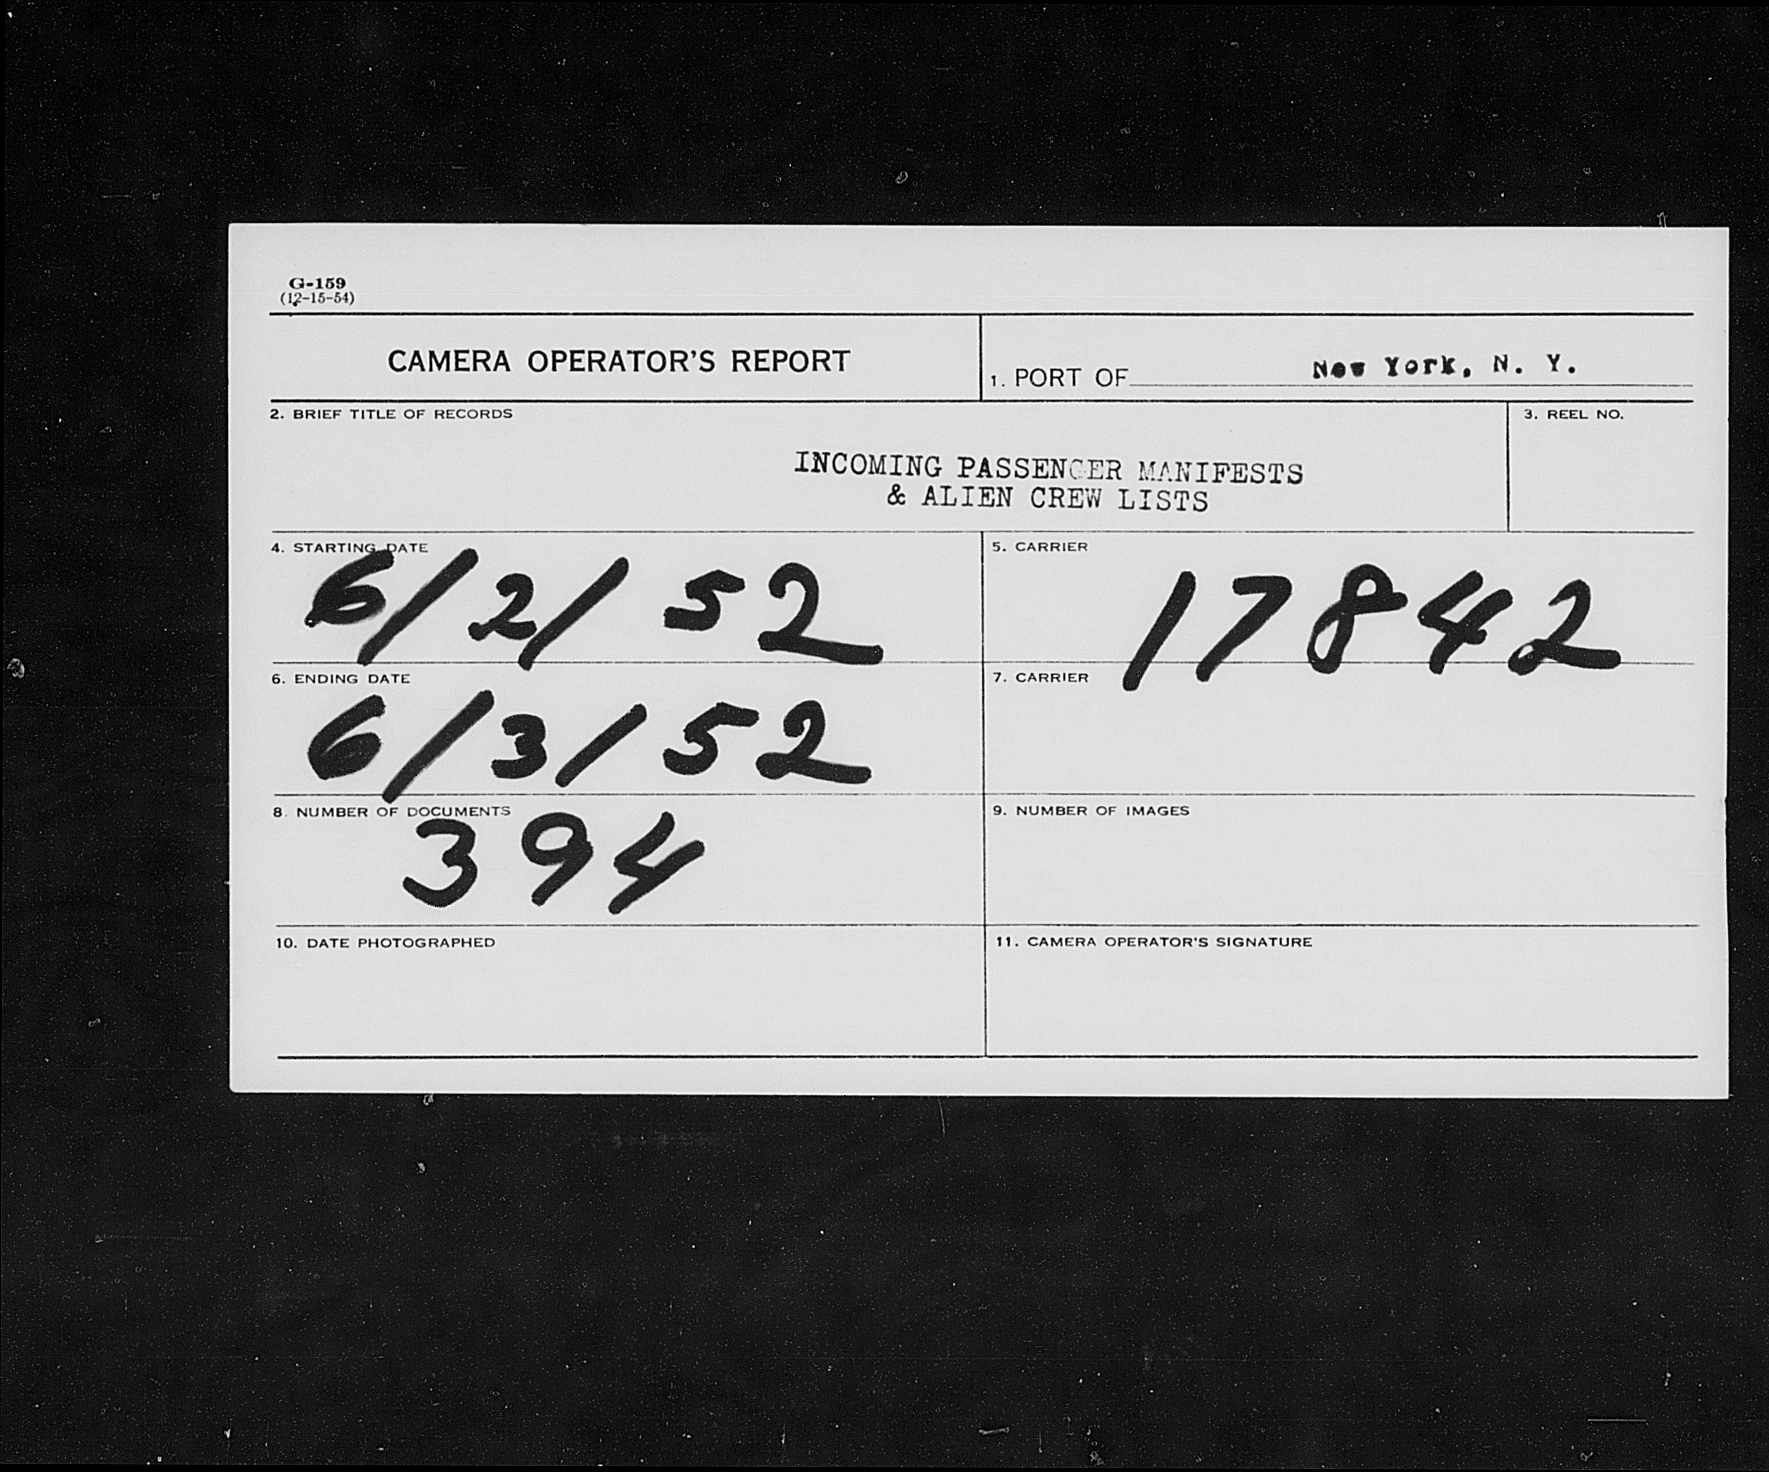 G-159
(12-15-54)
CAMERA OPERATOR'S REPORT
1. PORT OF New York, N. Y.
2. BRIEF TITLE OF RECORDS
3. REEL NO.
INCOMING PASSENGER MANIFESTS
& ALIEN CREW LISTS
4. STARTING DATE
6/2/52
5. CARRIER
17842
6. ENDING DATE
6/3/52
7. CARRIER
8. NUMBER OF DOCUMENTS
394
9. NUMBER OF IMAGES
10. DATE PHOTOGRAPHED
11. CAMERA OPERATOR'S SIGNATURE